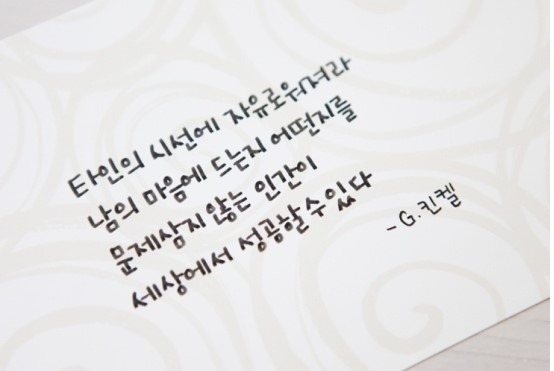 타인의 시선에 자유로워져라
남의 마음에 드는지 어떤지를
문제삼지 않는 인간이
세상에서 성공할 수 있다
-G.킨켈